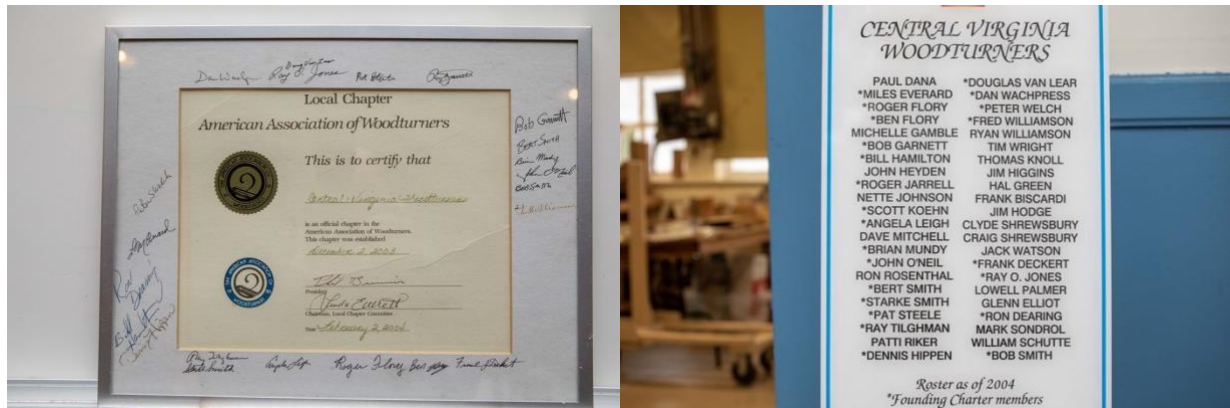 Ray O. Jones
Local Chapter
American Association of Woodturners
Bob Garnett
Bert Smith
Brian Mundy
John O'Neil
This is to certify that
Central Virginia Woodturners
is an official chapter in the
American Association of Woodturners.
This chapter was established
December 2, 2003
President
Linda Everett
Chairman, Local Chapter Committee
Date February 2, 2004
Ron Dearing
Bill Hamilton
Roger Flory
CENTRAL VIRGINIA
WOODTURNERS
PAUL DANA
*MILES EVERARD
*ROGER FLORY
*BEN FLORY
MICHELLE GAMBLE
*BOB GARNETT
*BILL HAMILTON
JOHN HEYDEN
*ROGER JARRELL
NETTE JOHNSON
*SCOTT KOEHN
*ANGELA LEIGH
DAVE MITCHELL
*BRIAN MUNDY
*JOHN O'NEIL
RON ROSENTHAL
*BERT SMITH
*STARKE SMITH
*PAT STEELE
*RAY TILGHMAN
PATTI RIKER
*DENNIS HIPPEN
*DOUGLAS VAN LEAR
*DAN WACHPRESS
*PETER WELCH
*FRED WILLIAMSON
RYAN WILLIAMSON
TIM WRIGHT
THOMAS KNOLL
JIM HIGGINS
HAL GREEN
FRANK BISCARDI
JIM HODGE
CLYDE SHREWSBURY
CRAIG SHREWSBURY
JACK WATSON
*FRANK DECKERT
*RAY O. JONES
LOWELL PALMER
GLENN ELLIOT
*RON DEARING
MARK SONDROL
WILLIAM SCHUTTE
*BOB SMITH
Roster as of 2004
*Founding Charter members